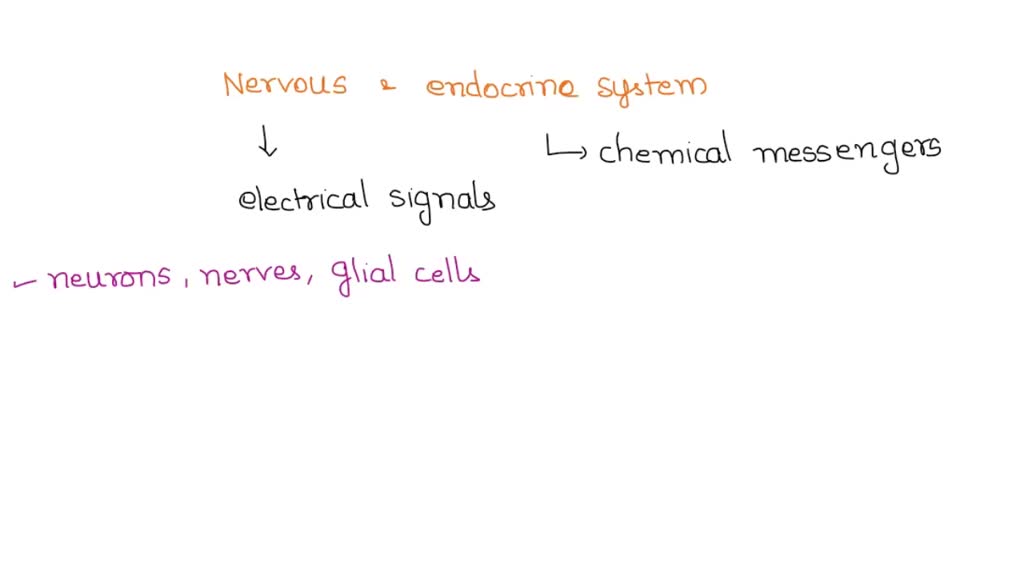 Nervous & endocrine system
↓ ↳ chemical messengers
electrical signals
- neurons, nerves, glial cells